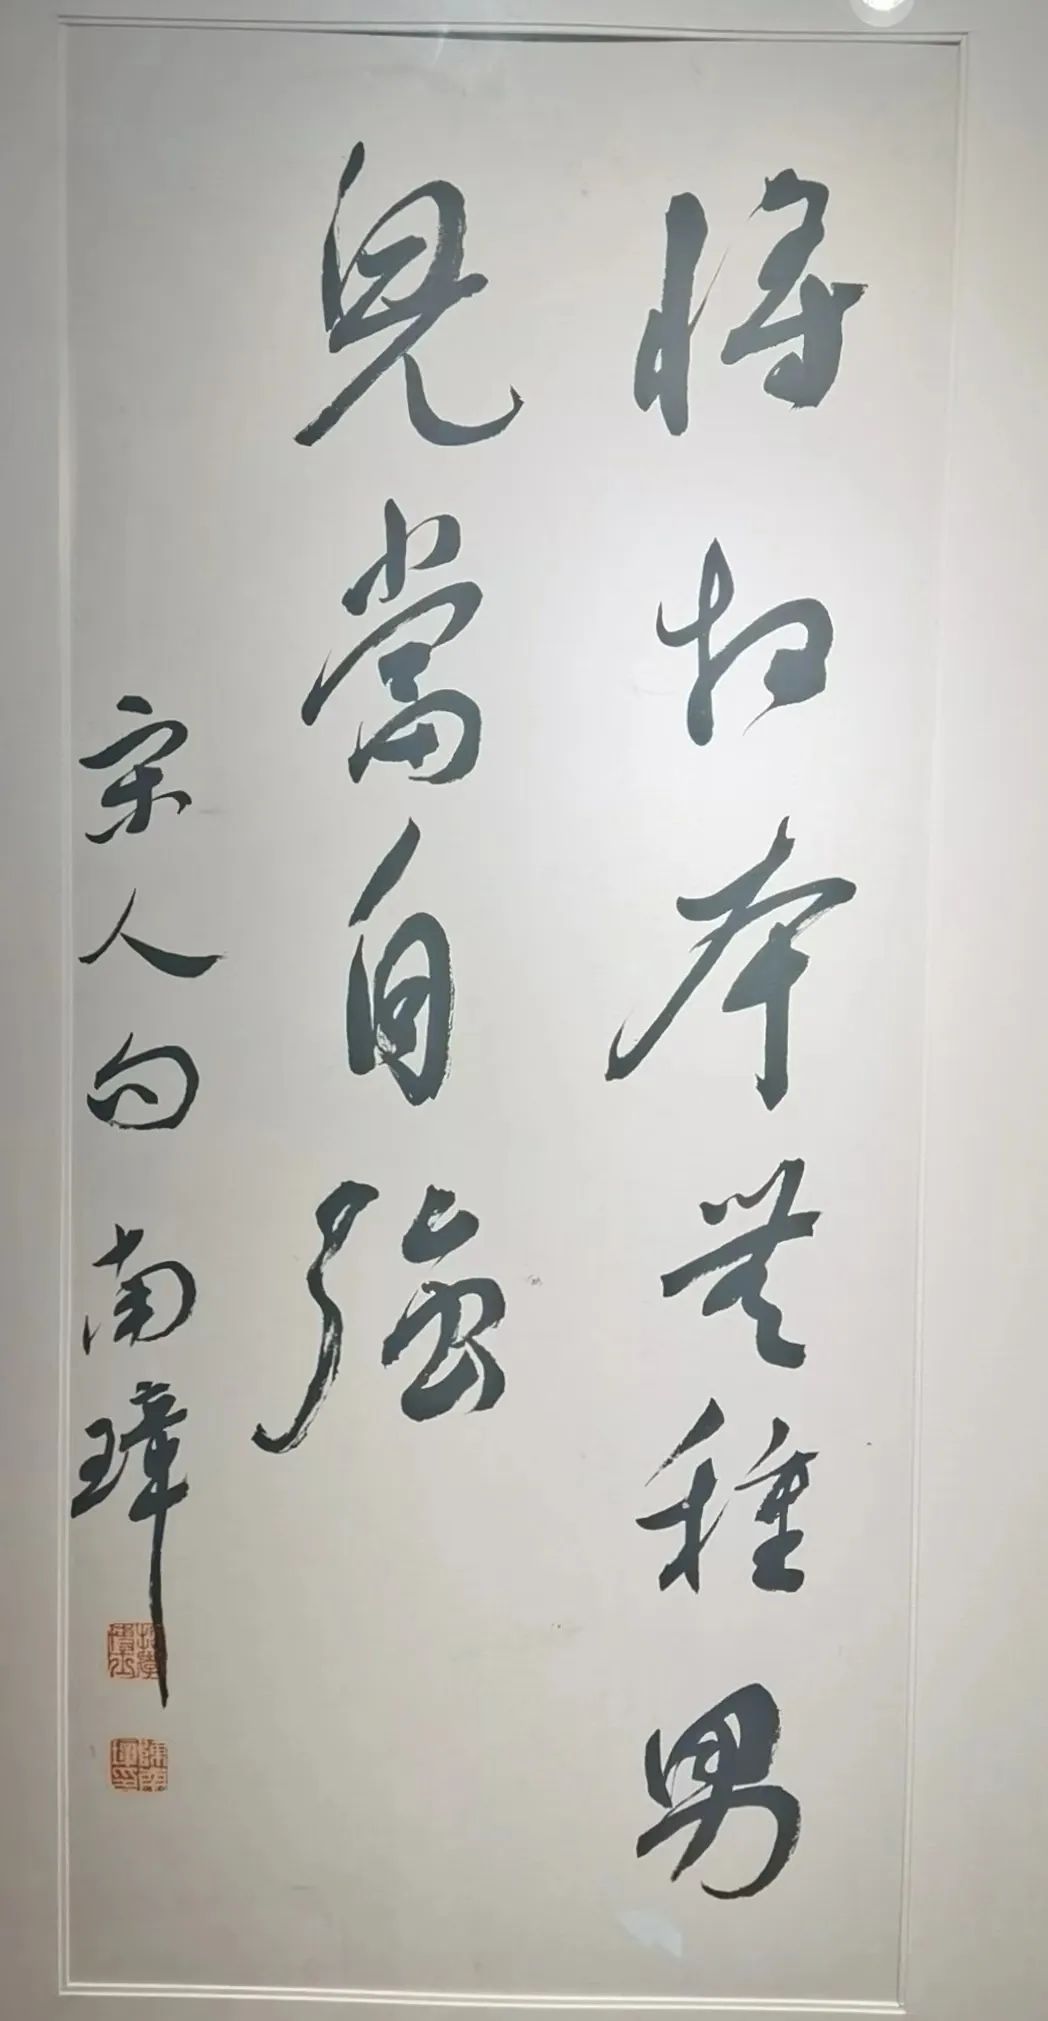 將相本無種男
兒當自強
宋人句 南璋